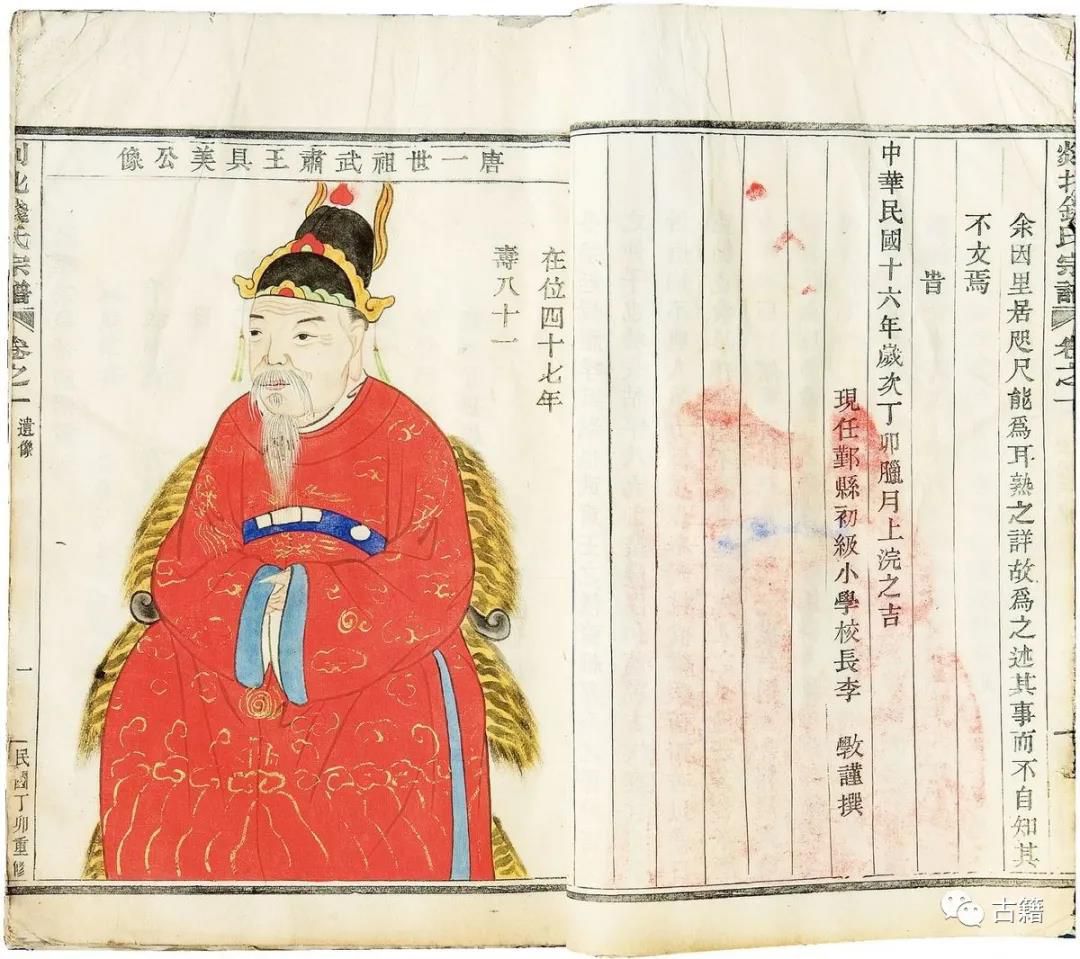 錢氏宗譜 卷之一
余因里居咫尺能爲耳熟之詳故爲之述其事而不自知其
不文焉
旹
中華民國十六年歲次丁卯臘月上浣之吉
現任鄞縣初級小學校長李 斆謹撰
唐一世祖武肅王具美公像
在位四十七年
壽八十一
氏宗譜 卷之一 遺像 一 民國丁卯重修
古籍